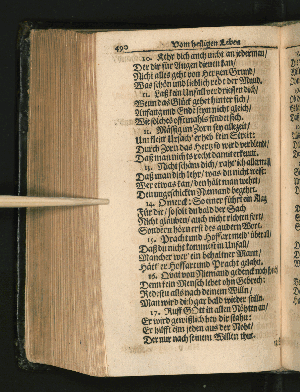 490 Vom heiligen Leben
10. Kehr dich auch nicht an jederman/
Der dir für Augen dienen kan/
Nicht alles geht von Hertzen Grund/
Was schön und lieblich redt der Mund.
11. Laß kein Unfall verdriessen dich/
Wenn das Glück gehet hinter sich/
Anfang und End seyn nicht gleich/
Wie solches offtmahls findet sich.
12. Mässig im Zorn sey allezeit/
Um kleine Ursach erheb kein Streit:
Durch Zorn das Hertz so wird verblendt/
Daß man nichts recht darin erkennt.
13. Nicht schäm dich/ raht ich allermeist
Daß man dich lehr/ was du nicht weist:
Wer etwas kan/ den hält man wehrt/
Den ungeschickten Niemand begehrt.
14. O merck: So einer führt ein Klag
Für dir/ so solt du bald der Sach
Nicht glauben/ auch nicht richten fort/
Sondern hören erst des andern Wort.
15. Pracht und Hoffart meid überall/
Daß du nicht kommest in Unfall/
Mancher wer ein behaltner Mann/
Hätt er Hoffart und Pracht gelahn.
16. Von Niemand
Denn kein Mensch lebet ohn Gebrech:
Redestu alls nach deinem Willn/
Man wird dich gar bald wieder stilln.
17. Ruff GOtt in allen Nöhten an/
Er wird gewißlich bey dir stahn:
Er hilfft eim jeden aus der Noht/
Der nur nach seinem Willen thut.